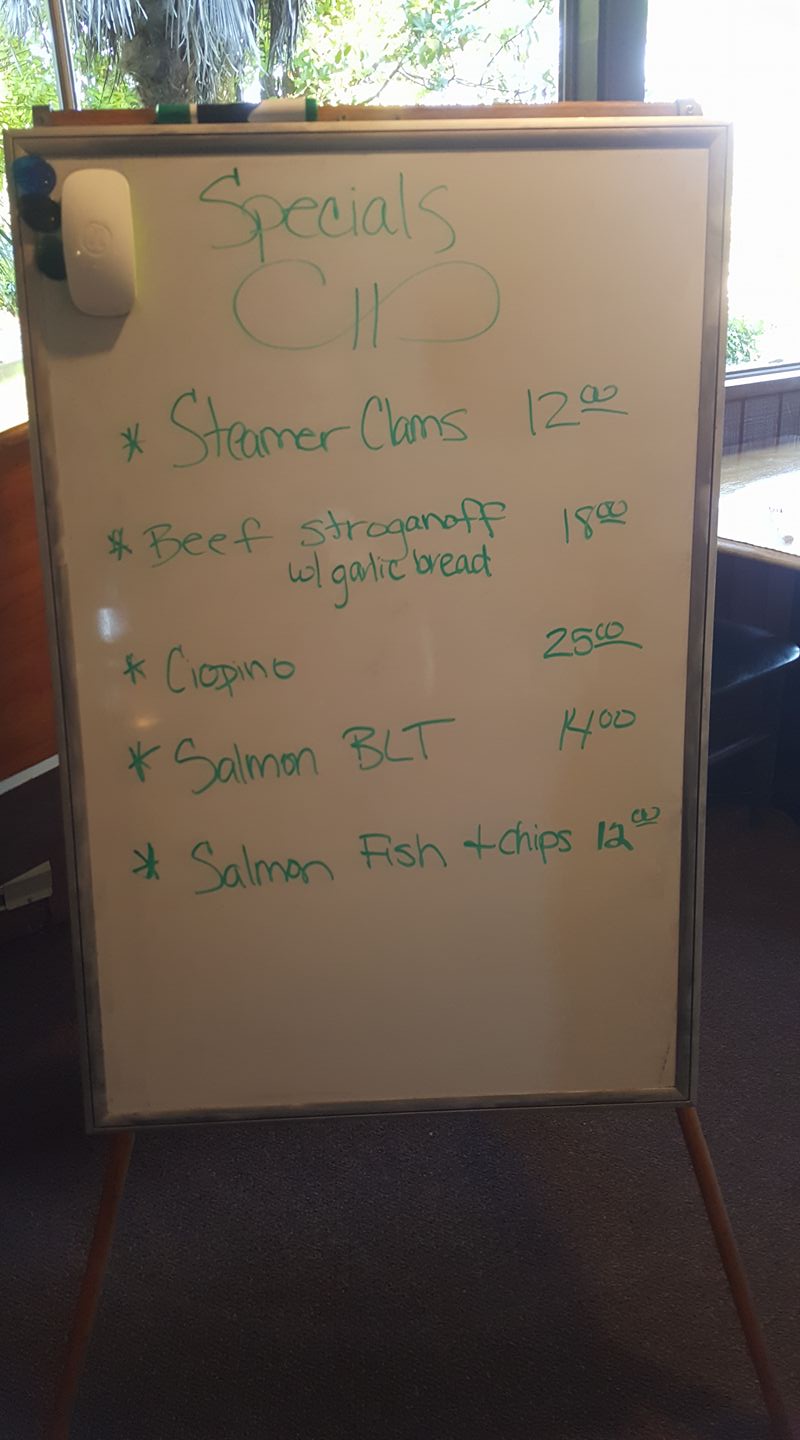 Specials
* Steamer Clams 12.00
* Beef stroganoff 18.00
w/ garlic bread
* Ciopino 25.00
* Salmon BLT 14.00
* Salmon Fish + chips 12.00